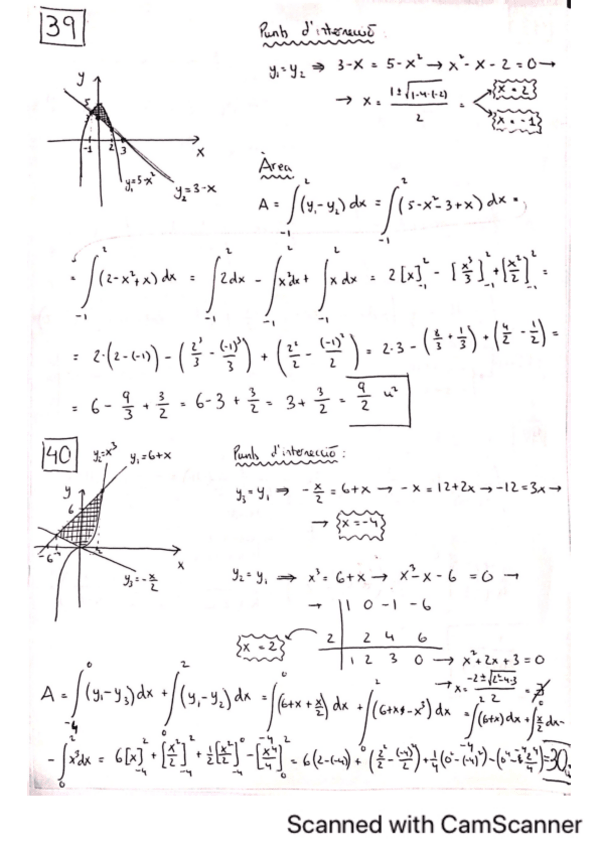 39
Punts d'intersecció:
y₁=y₂ ⇒ 3-x = 5-x² → x²-x-2=0 →
→ x = (1±√(1-4·(-2)))/2 = x=2
x=-1
y
5
-1 2 3
x
y₁=5-x²
y₂=3-x
Àrea
A = ∫₋₁² (y₁-y₂) dx = ∫₋₁² (5-x²-3+x) dx =
= ∫₋₁² (2-x²+x) dx = ∫₋₁² 2dx - ∫₋₁² x²dx + ∫₋₁² x dx = 2[x]₋₁² - [x³/3]₋₁² + [x²/2]₋₁² =
= 2·(2-(-1)) - (2³/3 - (-1)³/3) + (2²/2 - (-1)²/2) = 2·3 - (8/3 + 1/3) + (4/2 - 1/2) =
= 6 - 9/3 + 3/2 = 6-3 + 3/2 = 3 + 3/2 = 9/2 u²
40
y₂=x³
y₁=6+x
Punts d'intersecció:
y
6
-6 -4 2
x
y₃=-x/2
y₃=y₁ ⇒ -x/2 = 6+x → -x = 12+2x → -12=3x →
→ x=-4
y₂=y₁ ⇒ x³=6+x → x³-x-6=0 →
→ 1 0 -1 -6
x=2
2 2 4 6
1 2 3 0 → x²+2x+3=0
→ x = (-2±√(2²-4·3))/2 = ∄
A = ∫₋₄⁰ (y₁-y₃) dx + ∫₀² (y₁-y₂) dx = ∫₋₄⁰ (6+x+x/2) dx + ∫₀² (6+x-x³) dx = ∫₋₄² (6+x) dx + ∫₋₄⁰ x/2 dx -
- ∫₀² x³dx = 6[x]₋₄² + [x²/2]₋₄² + 1/2[x²/2]₋₄⁰ - [x⁴/4]₀² = 6(2-(-4)) + (2²/2 - (-4)²/2) + 1/4(0²-(-4)²) - =30
Scanned with CamScanner